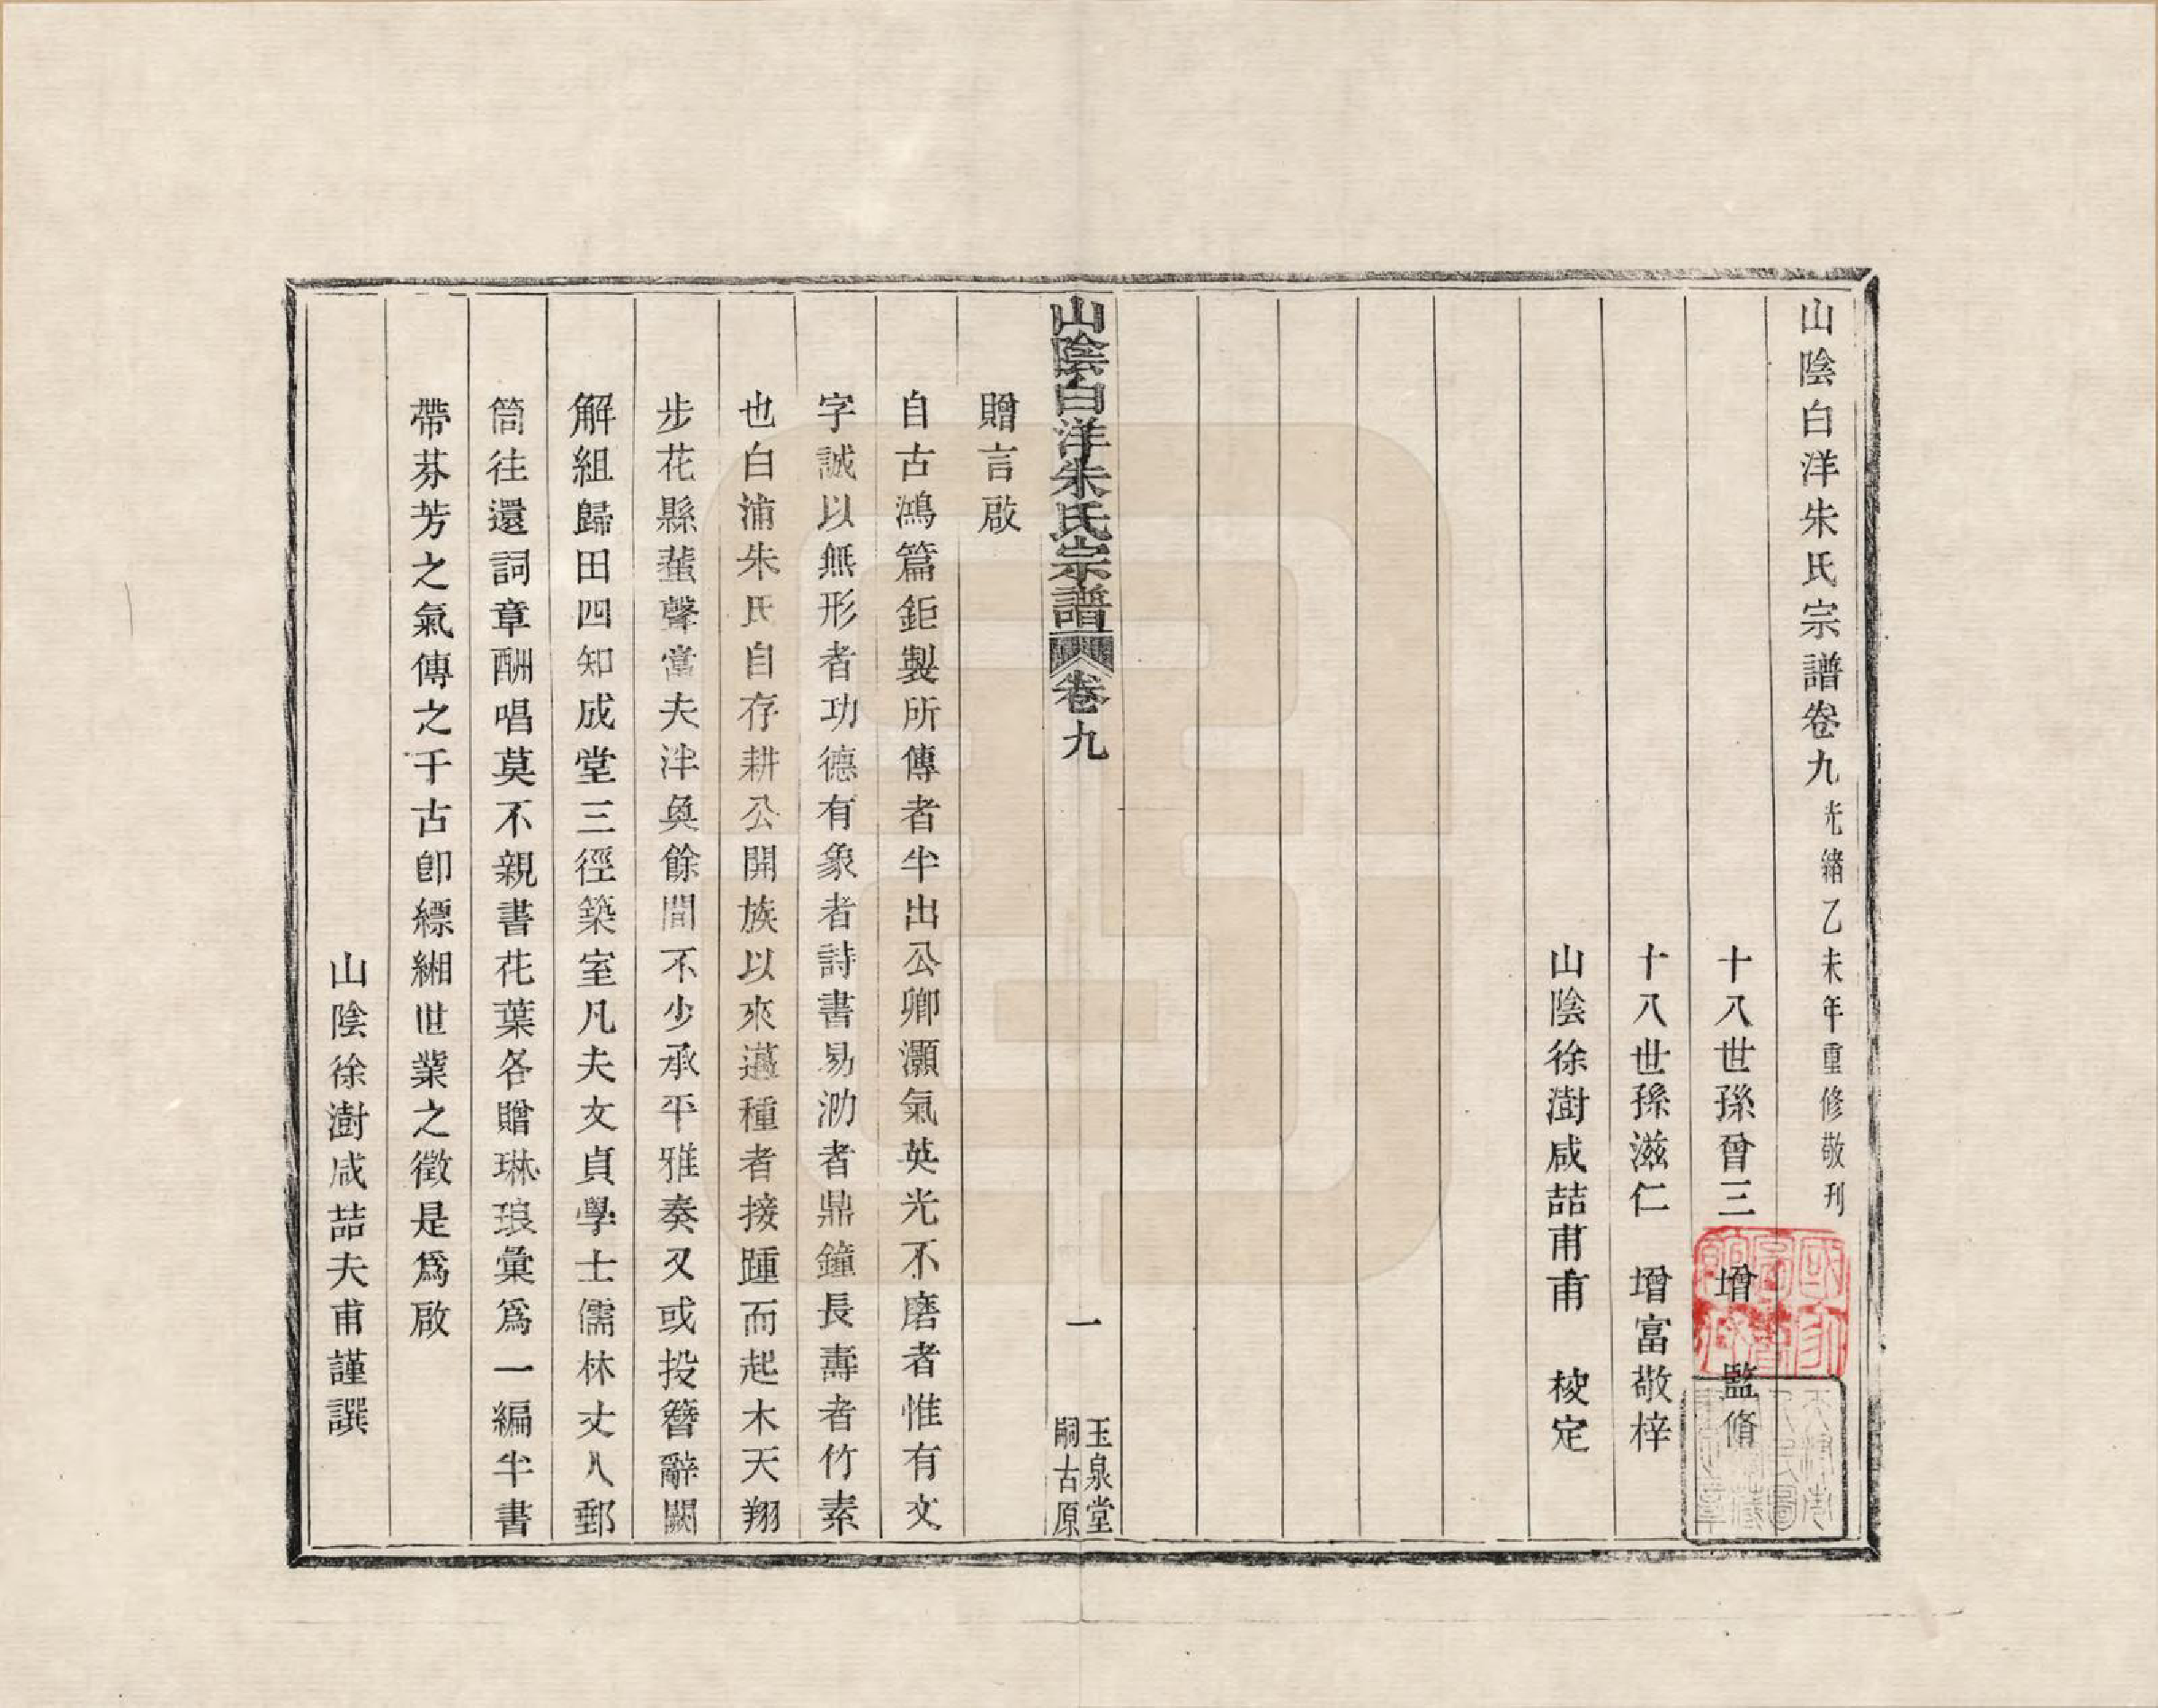 山陰白洋朱氏宗譜卷九 光緒乙未年重修敬刊
十八世孫曾三 增 監脩
十八世孫滋仁 增富敬梓
山陰徐澍咸喆甫甫 校定
山陰白洋朱氏宗譜 卷九 一 玉泉堂
嗣古原
贈言啟
自古鴻篇鉅製所傳者半出公卿灝氣英光不磨者惟有文
字誠以無形者功德有象者詩書易泐者鼎鐘長壽者竹素
也白浦朱氏自存耕公開族以來邁種者接踵而起木天翔
步花縣蜚聲當夫泮奐餘間不少承平雅奏又或投簪辭闕
解組歸田四知成堂三徑築室凡夫文貞學士儒林丈人郵
筒往還詞章酬唱莫不親書花葉各贈琳琅彙為一編半書
帶芬芳之氣傳之千古卽縹緗世業之徵是為啟
山陰徐澍咸喆夫甫謹譔